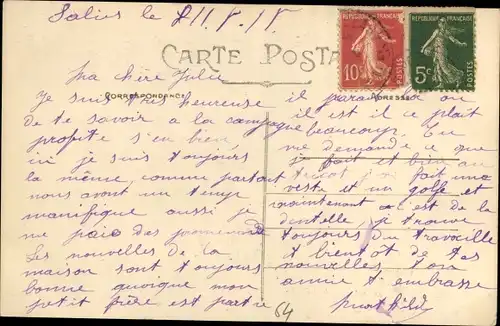 Salies le
CARTE POSTA
RÉPUBLIQUE FRANÇAISE
10c
POSTES
REPUBLIQUE FRANÇAISE
5c
POSTES
CORRESPONDANCE
ADRESSE
ma chère Julie
Je suis très heureuse
de te savoir a la campagne
profite s'en bien
ici je suis toujours
la même comme partout
nous avont un temp
manifique aussi je
me paie des promenade
Les nouvelles de la
maison sont toujours
bonne quoique mon
petit frère est partie
il parait la ou
il est il ce plait
beaucoup. tu
me demande ce que
je fait et bien au
tricot j'ai fait une
veste et un golfe et
maintenant c'est de la
dentelle je trouve
toujours du travaille
A bientôt de tes
nouvelles ton
amie t'embrasse
64